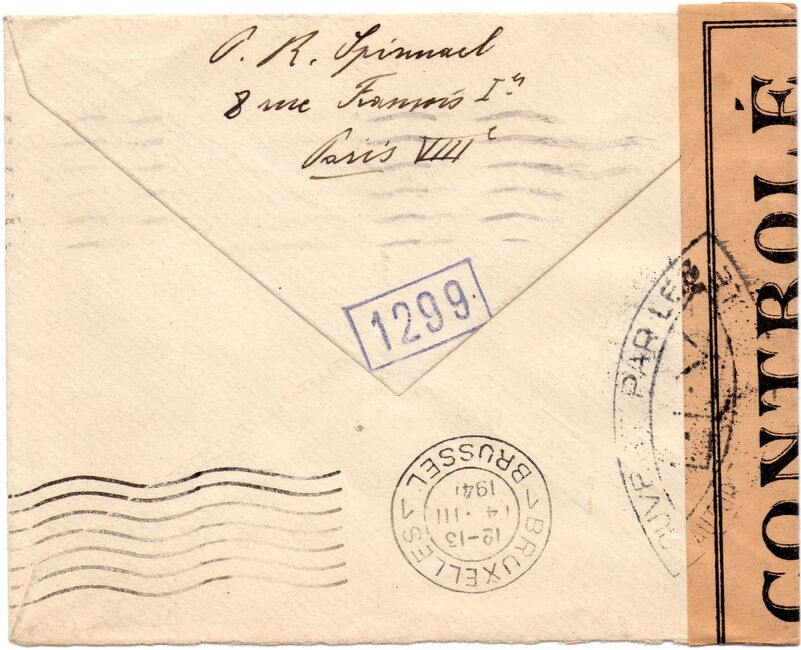 P. R. Spinnael
8 rue François Ier
Paris VIIIe
1299
BRUXELLES BRUSSEL
12-13
14·III
194
CONTROLÉ
PAR LES